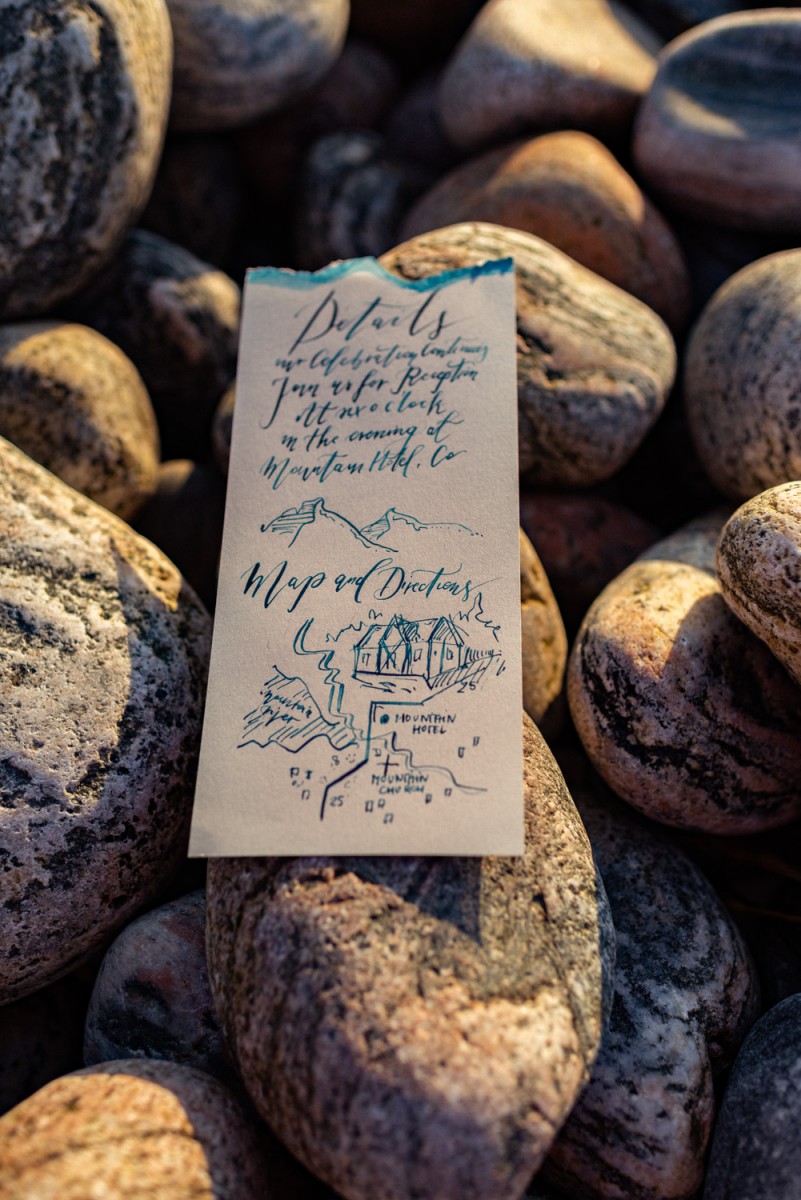 Details
our Celebration Continues
Join us for Reception
At six o clock
in the evening at
Mountain Hotel, Co
Map and Directions
25
mountain
river
MOUNTAIN
HOTEL
MOUNTAIN
CHURCH
25